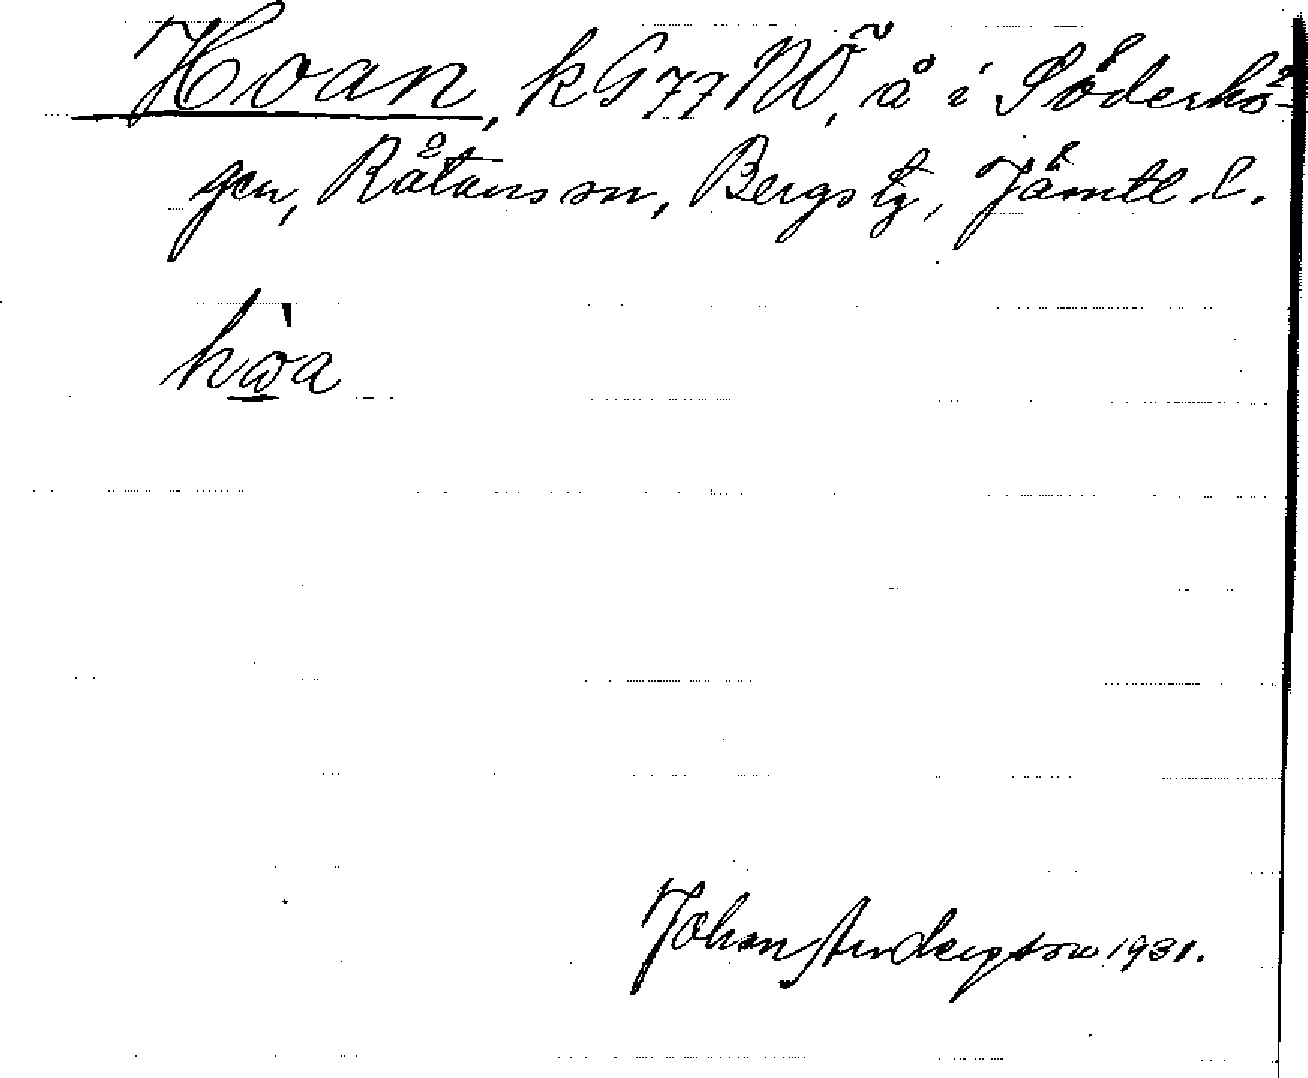 Hoan, kG 77 NÖ, å i Söderhö-
gen, Råtans sn, Bergs tg, Jämtl. l.
hòa
Johan Anderzson 1931.